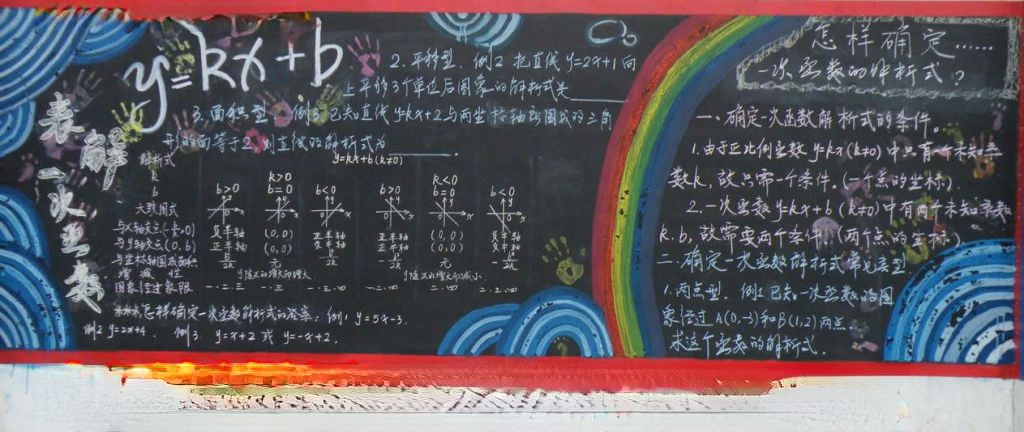 表解一次函数
y=kx+b
怎样确定……
一次函数的解析式？
一、确定一次函数解析式的条件。
1.由于正比例函数 y=kx(k≠0)中只有一个未知系
数k,故只需一个条件。(一个点的坐标)
2.一次函数y=kx+b(k≠0)中有两个未知系数
k.b,故需要两个条件。(两个点的坐标)
二.确定一次函数解析式常见类型
1.两点型.例1.已知一次函数的图
象经过A(0,-3)和B(1,2)两点.
求这个函数的解析式.
2.平移型.例2 把直线y=2x+1向
上平移3个单位后图象的解析式是
3.面积型.例3 已知直线y=kx+2与两坐标轴所围成的三角
形的面等于2,则直线的解析式为
解析式 y=kx+b(k≠0)
k k>0 k<0
b b>0 b=0 b<0 b>0 b=0 b<0
大致图式
与x轴交点(-b/k,0) 负半轴 (0,0) 正半轴 正半轴 (0,0) 负半轴
与y轴交点(0,b) 正半轴 (0,0) 负半轴 正半轴 (0,0) 负半轴
与坐标轴围成面积 无 无
增减性 y随x的增大而增大 y随x的增大而减小
图象经过象限 一.二.三 一.三 一.三.四 一.二.四 二.四 二.三.四
怎样确定一次函数解析式的答案:例1.y=5x-3.
例2 y=2x+4. 例3. y=x+2 或 y=-x+2.